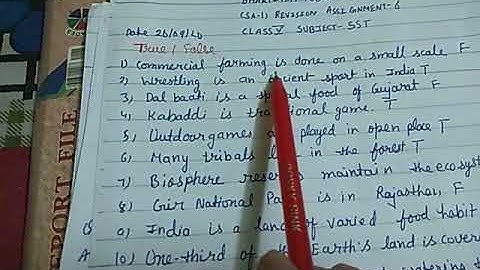 (SA-1) REVISION ASSIGNMENT-6
Date 20/09/20 CLASS V SUBJECT-SST
True/False
1) Commercial farming is done on a small scale F
2) Wrestling is an ancient sport in India T
3) Dal baati is a food of Gujarat F
4) Kabaddi is traditional game. T
5) Outdoor games are played in open place T
6) Many tribals in the forest T
7) Biosphere reserves maintain the ecosyst
8) Gir National Pa is in Rajasthan, F
9) India is a land of varied food habit
10) One-third of the Earth's land is covere
EPORT FILE